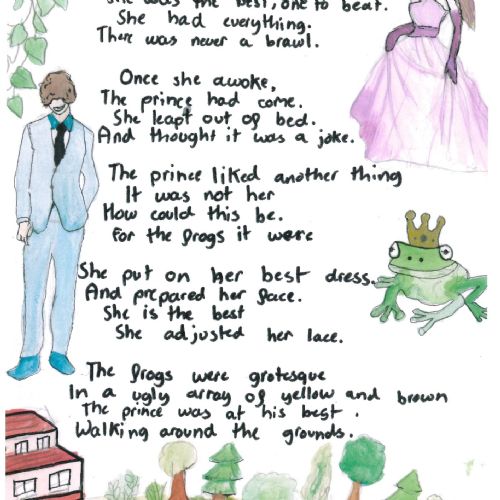 She was the best, one to beat.
She had everything.
There was never a brawl.
Once she awoke,
The prince had come.
She leapt out of bed.
And thought it was a joke.
The prince liked another thing
It was not her
How could this be.
For the frogs it were
She put on her best dress.
And prepared her face.
She is the best
She adjusted her lace.
The frogs were grotesque
In a ugly array of yellow and brown
The prince was at his best.
Walking around the grounds.